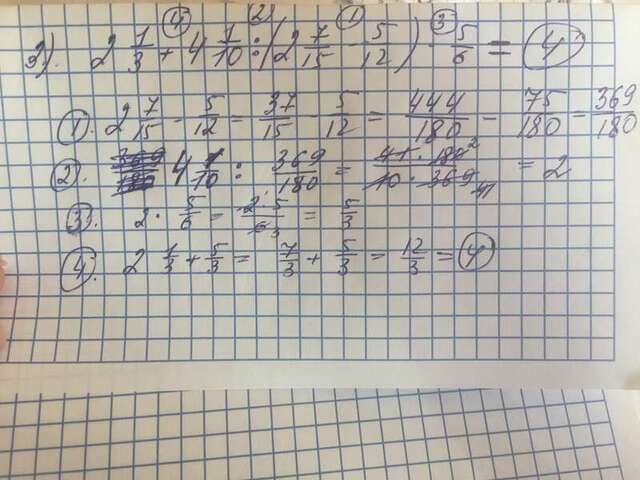 ④ ② ① ③
g). 2 1/3 + 4 1/10 : (2 7/15 - 5/12) · 5/6 = 4
①. 2 7/15 - 5/12 = 37/15 - 5/12 = 444/180 - 75/180 = 369/180
②. 4 1/10 : 369/180 = 41 · 180/10 · 369 = 2
③. 2 · 5/6 = 2 · 5/6 = 5/3
④. 2 1/3 + 5/3 = 7/3 + 5/3 = 12/3 = 4